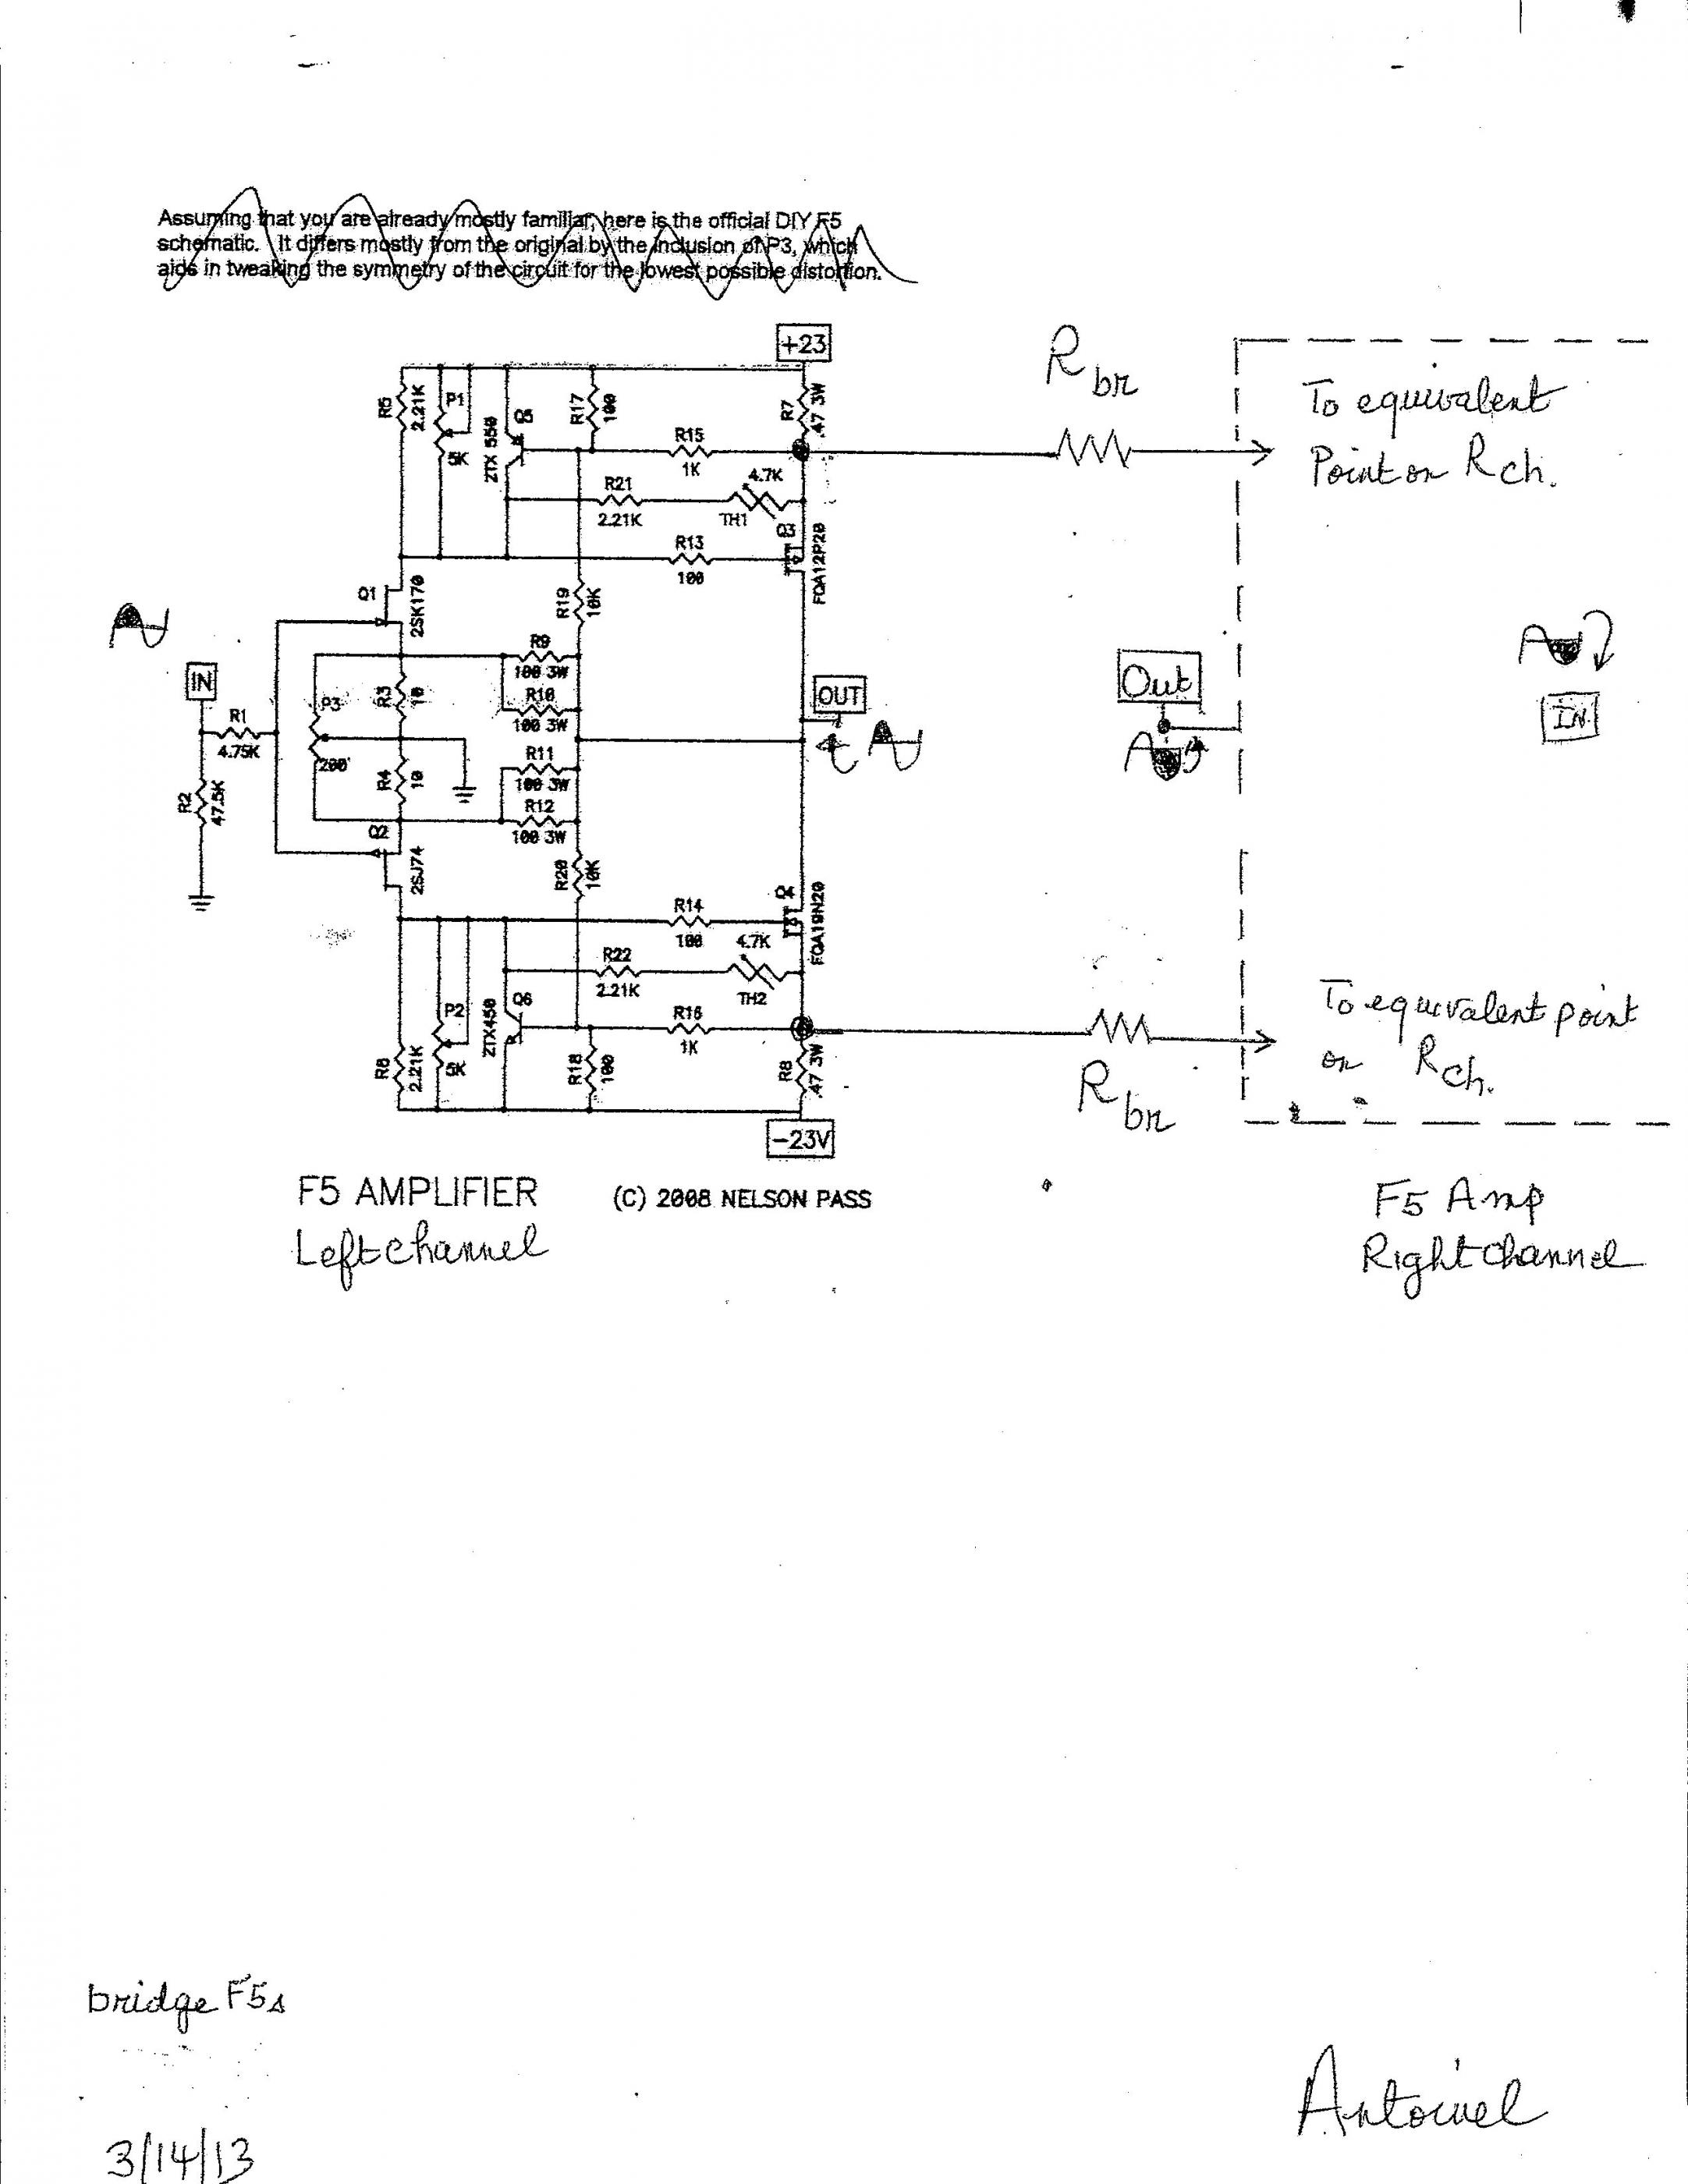 Assuming that you are already mostly familiar, here is the official DIY F5
schematic. It differs mostly from the original by the inclusion of P3, which
aids in tweaking the symmetry of the circuit for the lowest possible distortion.
+23
Rbr
To equivalent
Point on Rch.
R5
2.21K
P1
5K
ZTX 550
Q5
R17
100
R7
.47 3W
R15
1K
R21
2.21K
4.7K
TH1
Q3
FQA12P20
R13
100
Q1
2SK170
R19
10K
IN
R1
4.75K
R2
47.5K
P3
200
R3
10
R4
10
R9
100 3W
R10
100 3W
R11
100 3W
R12
100 3W
OUT
Out
IN
Q2
2SJ74
R20
10K
R14
100
Q4
FQA19N20
4.7K
R22
2.21K
TH2
R6
2.21K
P2
5K
ZTX450
Q6
R16
1K
R18
100
R8
.47 3W
Rbr
To equivalent point
on Rch.
-23V
F5 AMPLIFIER (C) 2008 NELSON PASS
Left channel
F5 Amp
Right channel
bridge F5s
Antoinel
3/14/13